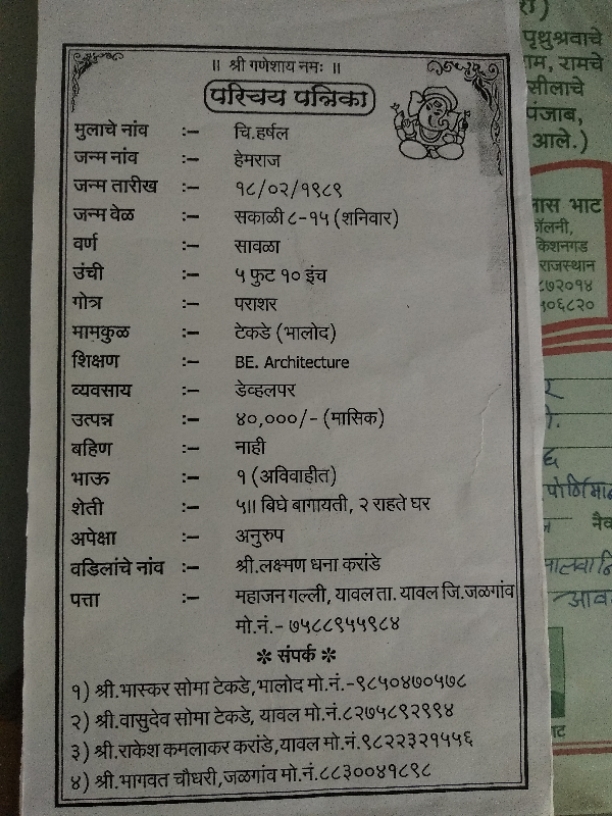 ॥ श्री गणेशाय नमः ॥
परिचय पत्रिका
मुलाचे नांव :– चि.हर्षल
जन्म नांव :– हेमराज
जन्म तारीख :– १८/०२/१९८९
जन्म वेळ :– सकाळी ८-१५ (शनिवार)
वर्ण :– सावळा
उंची :– ५ फुट १० इंच
गोत्र :– पराशर
मामकुळ :– टेकडे (भालोद)
शिक्षण :– BE. Architecture
व्यवसाय :– डेव्हलपर
उत्पन्न :– ४०,०००/- (मासिक)
बहिण :– नाही
भाऊ :– १ (अविवाहीत)
शेती :– ५॥ बिघे बागायती, २ राहते घर
अपेक्षा :– अनुरुप
वडिलांचे नांव :– श्री.लक्ष्मण धना करांडे
पत्ता :– महाजन गल्ली, यावल ता. यावल जि.जळगांव
मो.नं.- ७५८८९५५९८४
✽ संपर्क ✽
१) श्री.भास्कर सोमा टेकडे,भालोद मो.नं.-९८५०४७०५७८
२) श्री.वासुदेव सोमा टेकडे, यावल मो.नं.८२७५८९२९९४
३) श्री.राकेश कमलाकर करांडे,यावल मो.नं.९८२२३२१५५६
४) श्री.भागवत चौधरी,जळगांव मो.नं.८८३००४१८९८
पृथुश्रवाचे
ाम, रामचे
सीलाचे
पंजाब,
आले.)
ास भाट
ॉलनी,
केशनगड
राजस्थान
८७२०१४
५०६८२०